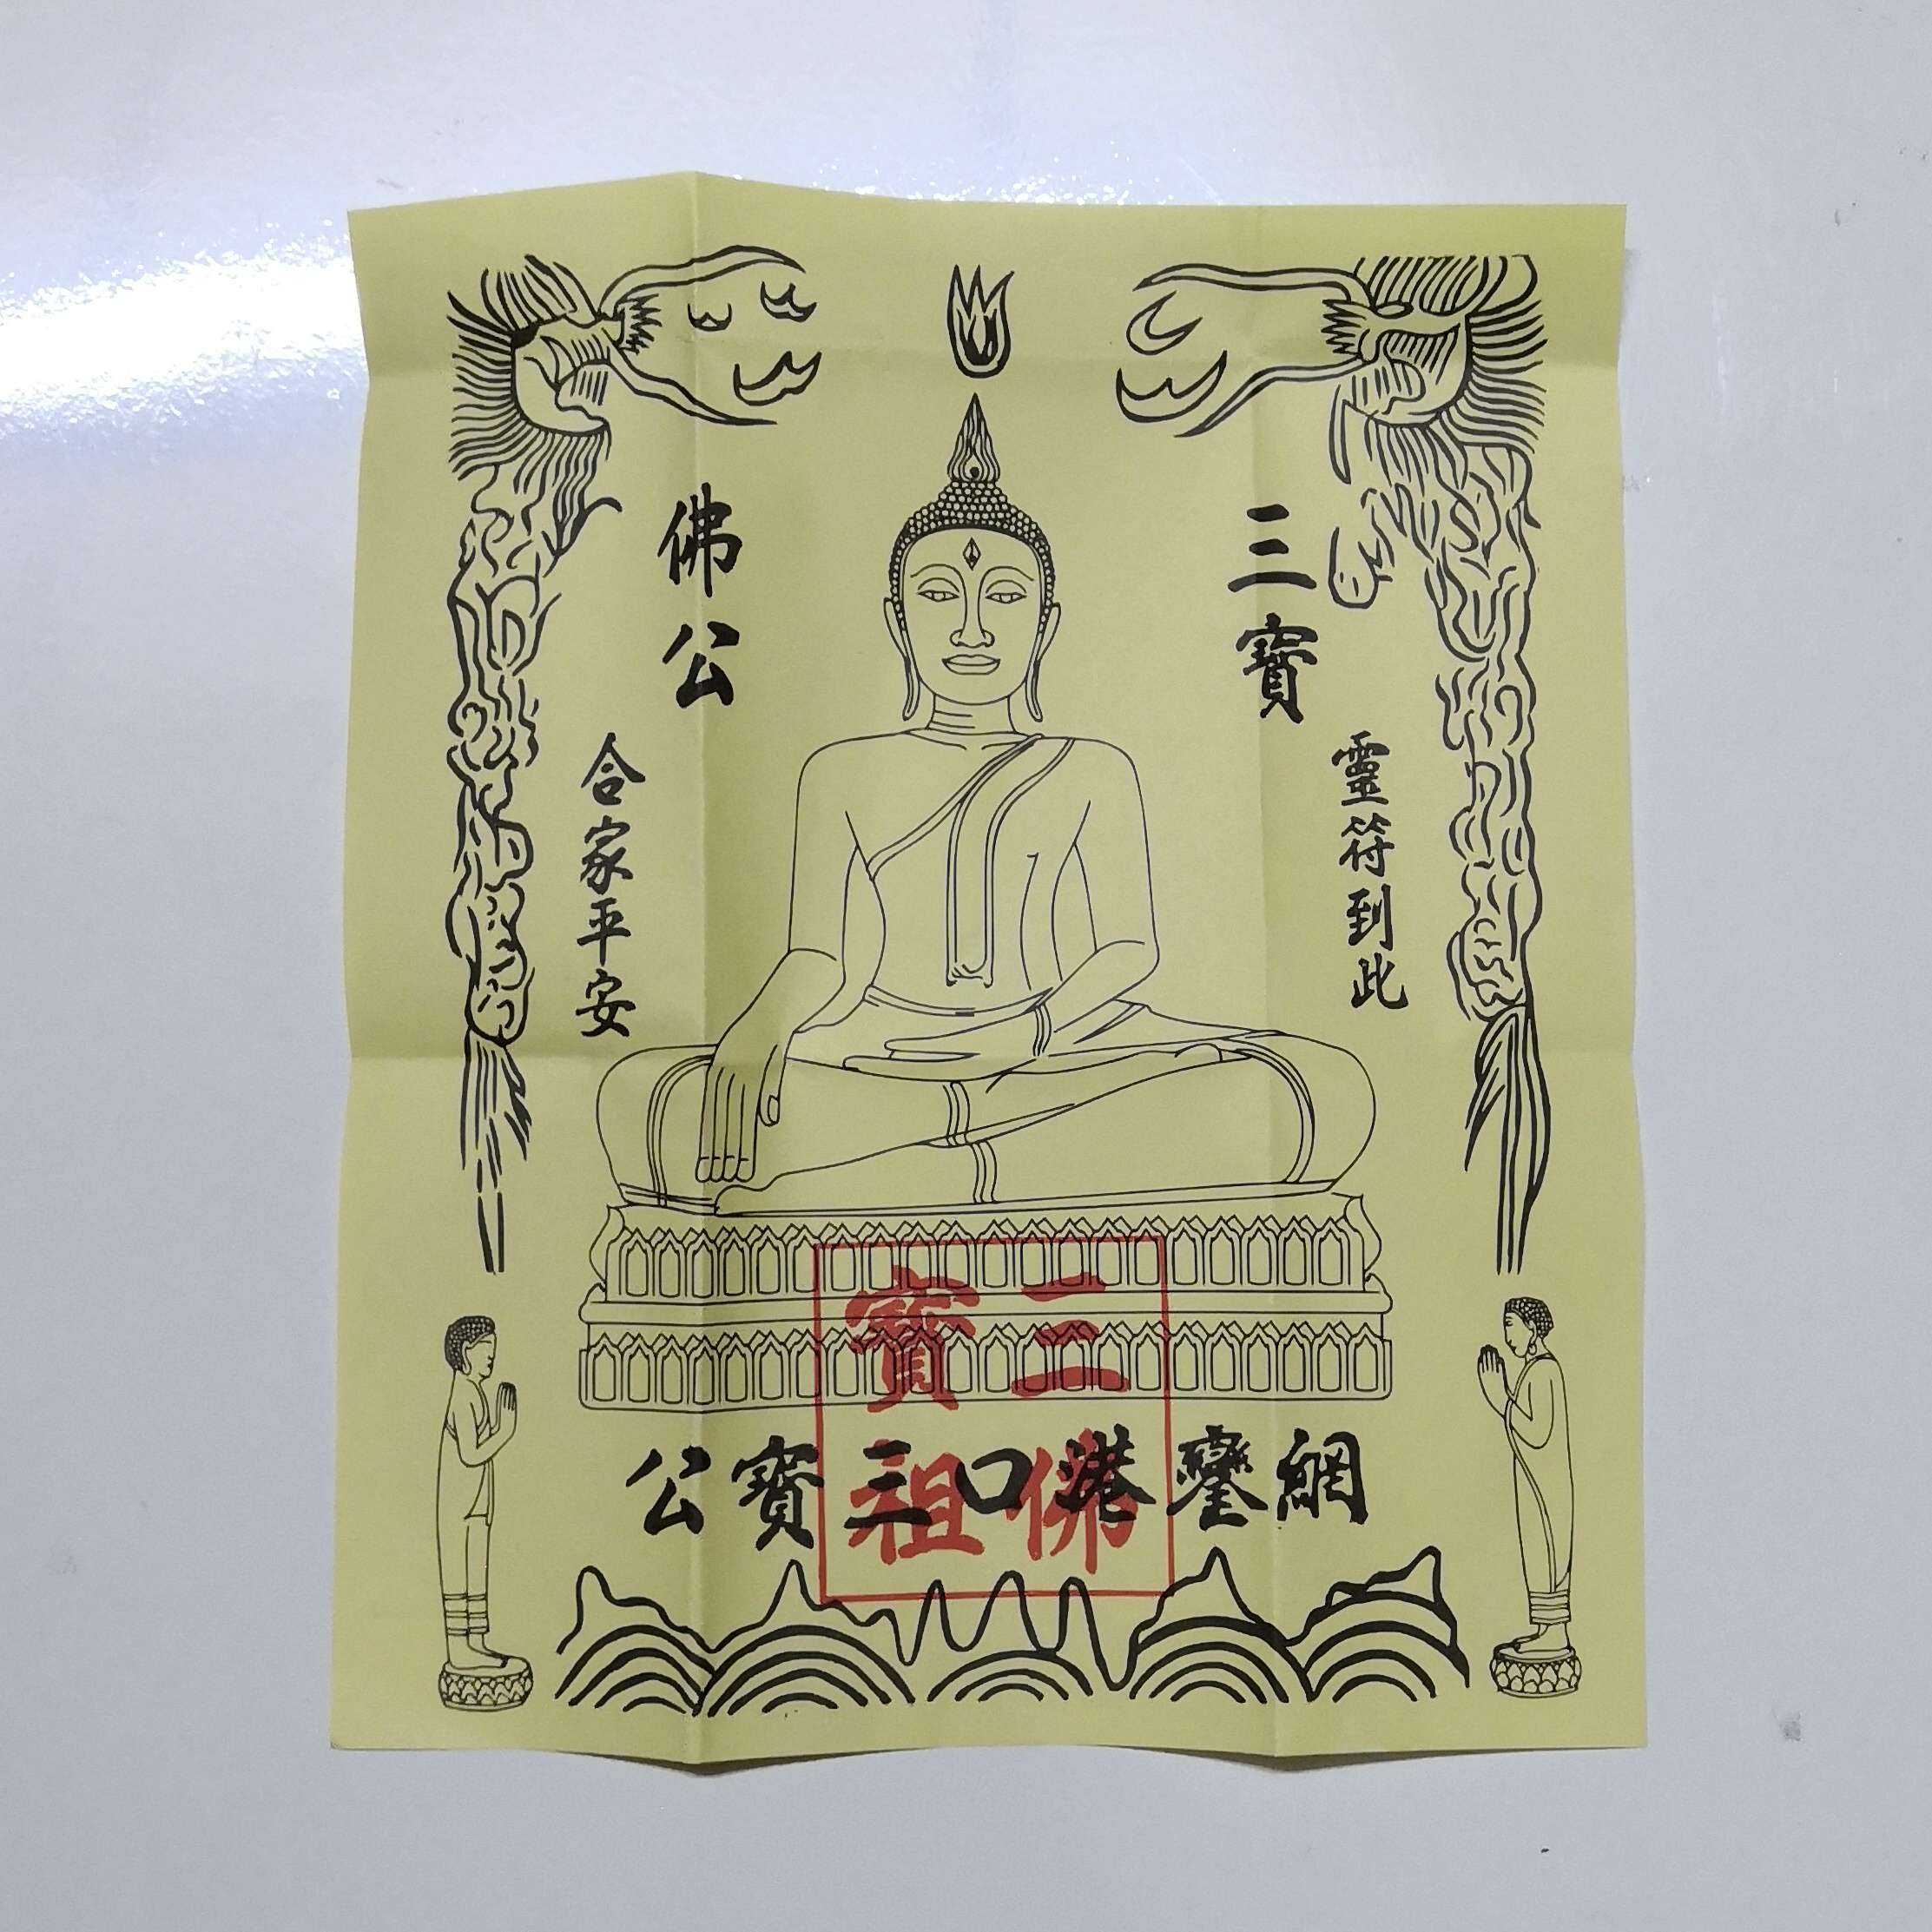 三寶
佛公
靈符到此
合家平安
三寶
佛祖
網鑾港口三寶公